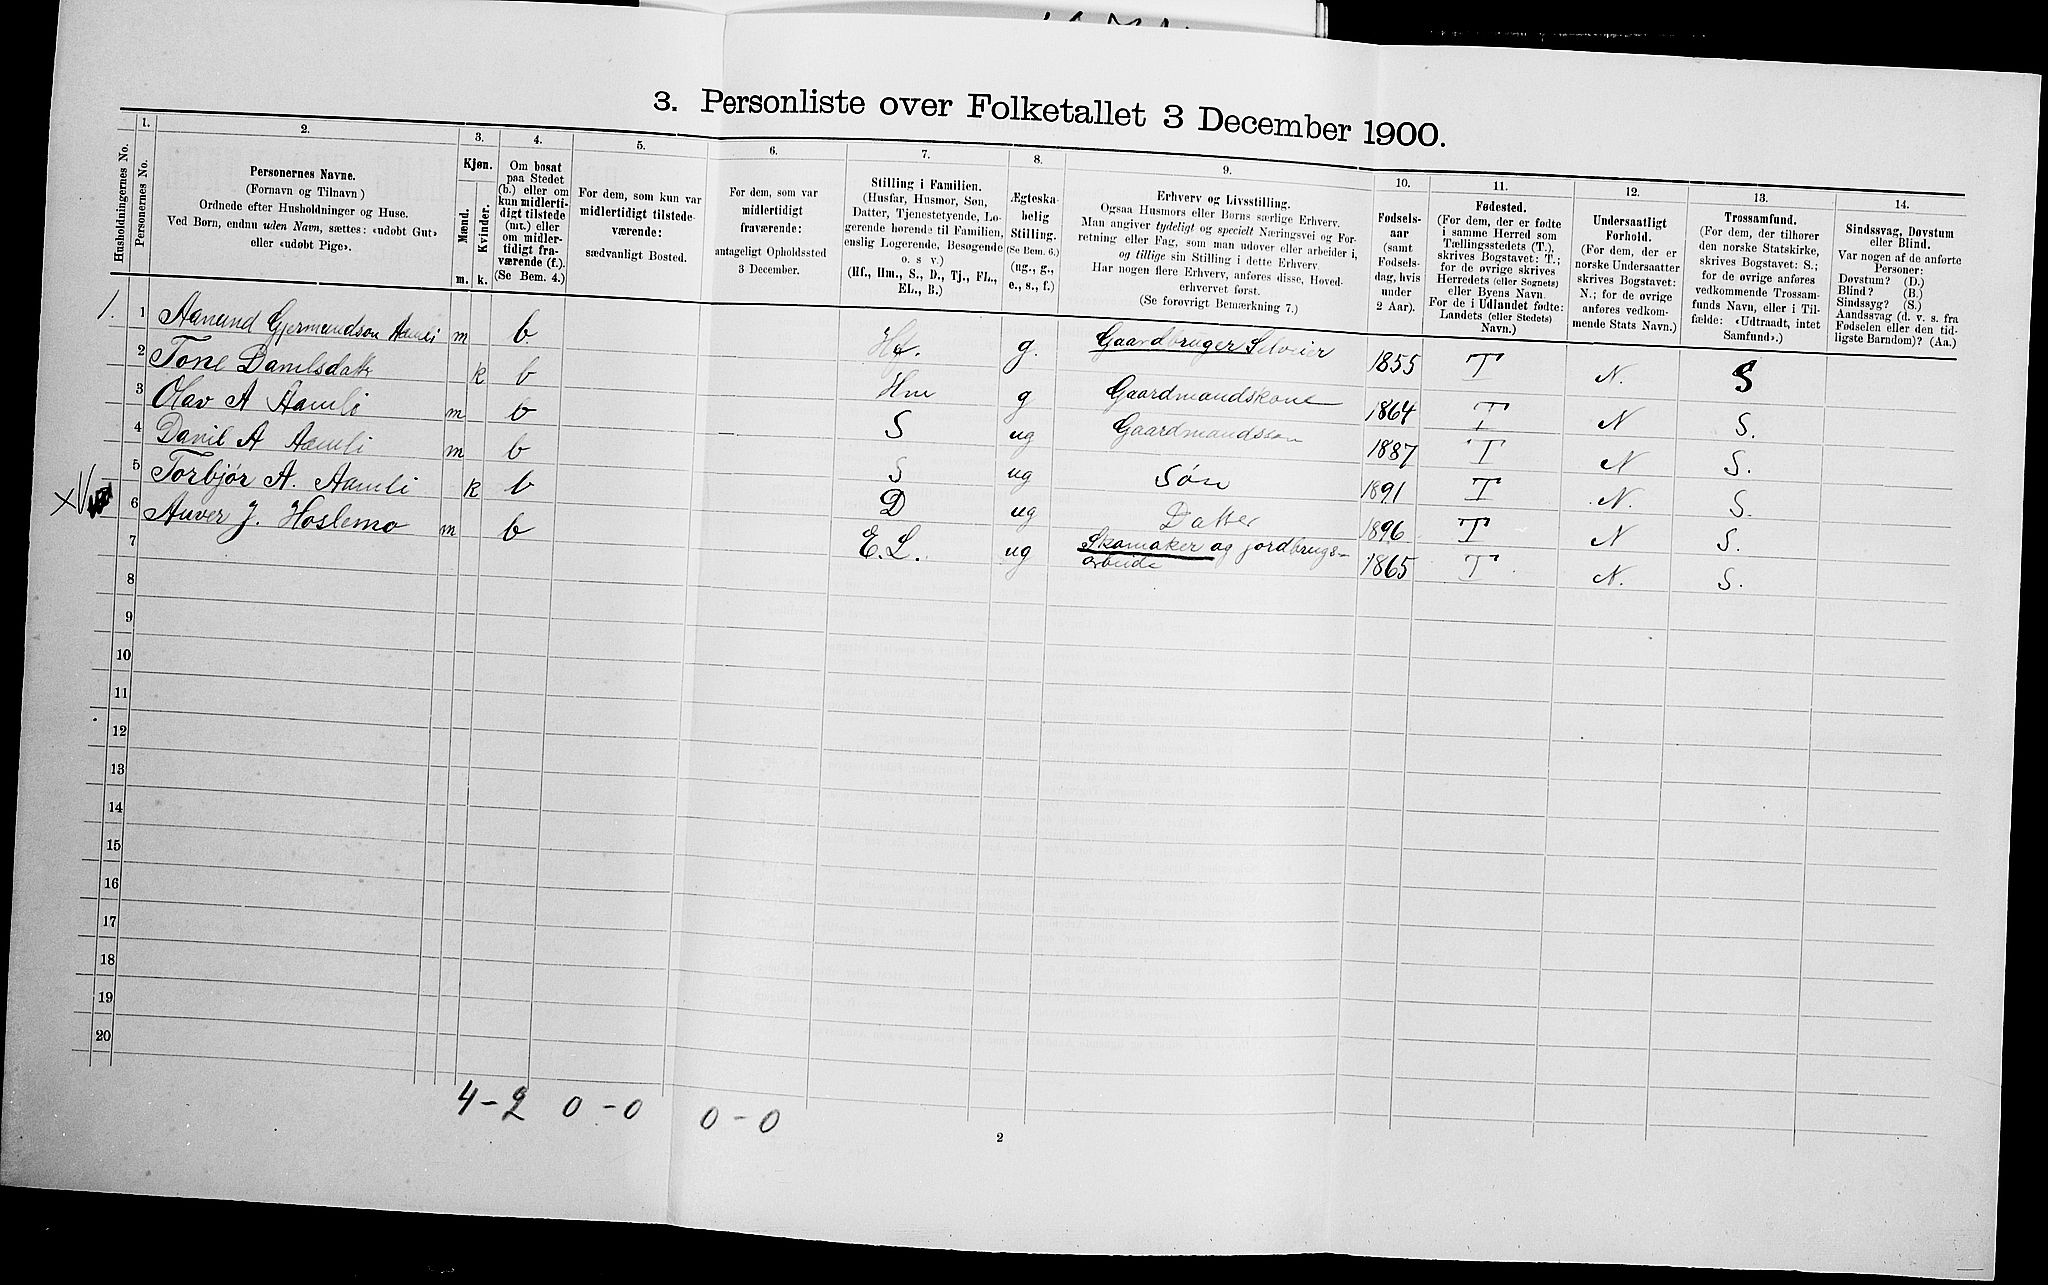 3. Personliste over Folketallet 3 December 1900.
Husholdningernes No.
1.
Personernes No.
2.
Personernes Navne.
(Fornavn og Tilnavn)
Ordnede efter Husholdninger og Huse.
Ved Børn, endnu uden Navn, sættes: «udøbt Gut»
eller «udøbt Pige».
3.
Kjøn.
Mænd.
Kvinder.
m. k.
4.
Om bosat
paa Stedet
(b.) eller om
kun midlerti-
digt tilstede
(mt.) eller
om midler-
tidigt fra-
værende (f.).
(Se Bem. 4.)
5.
For dem, som kun var
midlertidigt tilstede-
værende:
sædvanligt Bosted.
6.
For dem, som var
midlertidigt
fraværende:
antageligt Opholdssted
3 December.
7.
Stilling i Familien.
(Husfar, Husmor, Søn,
Datter, Tjenestetyende, Lo-
gerende hørende til Familien,
enslig Logerende, Besøgende
o. s v.)
(Hf., Hm., S., D., Tj., FL.,
EL., B.)
8.
Ægteska-
belig
Stilling.
(Se Bem. 6.)
(ug., g.,
e., s., f.)
9.
Erhverv og Livsstilling.
Ogsaa Husmors eller Børns særlige Erhverv.
Man angiver tydeligt og specielt Næringsvei og For-
retning eller Fag, som man udøver eller arbeider i,
og tillige sin Stilling i dette Erhverv.
Har nogen flere Erhverv, anføres disse, Hoved-
erhvervet først.
(Se forøvrigt Bemærkning 7.)
10.
Fødsels-
aar
(samt
Fødsels-
dag, hvis
under
2 Aar).
11.
Fødested.
(For dem, der er fødte
i samme Herred som
Tællingsstedets (T.),
skrives Bogstavet: T.;
for de øvrige skrives
Herredets (eller Sognets)
eller Byens Navn.
For de i Udlandet fødte:
Landets (eller Stedets)
Navn.)
12.
Undersaatligt
Forhold.
(For dem, der er
norske Undersaatter
skrives Bogstavet:
N.; for de øvrige
anføres vedkom-
mende Stats Navn.)
13.
Trossamfund.
(For dem, der tilhører
den norske Statskirke,
skrives Bogstavet: S.;
for de øvrige anføres
vedkommende Trossam-
funds Navn, eller i Til-
fælde: «Udtraadt, intet
Samfund».)
14.
Sindssvag, Døvstum
eller Blind.
Var nogen af de anførte
Personer:
Døvstum? (D.)
Blind? (B.)
Sindssyg? (S.)
Aandssvag (d. v. s. fra
Fødselen eller den tid-
ligste Barndom)? (Aa.)
1. 1 Aanund Gjermundson Aamli m b Hf. g. Gaardbruger Selveier 1855 T N. S
2 Tone Danilsdatr k b Hm g Gaardmandskone 1864 T N S.
3 Olav A Aamli m b S ug Gaardmandssøn 1887 T N S.
4 Danil A Aamli m b S ug Søn 1891 T N. S.
5 Torbjør A. Aamli k b D ug Datter 1896 T N S.
6 Anver J. Hoslemo m b E.L. ug Skomaker og jordbrugs-
arbeide 1865 T N. S.
7
8
9
10
11
12
13
14
15
16
17
18
19
20
4-2 0-0 0-0
2